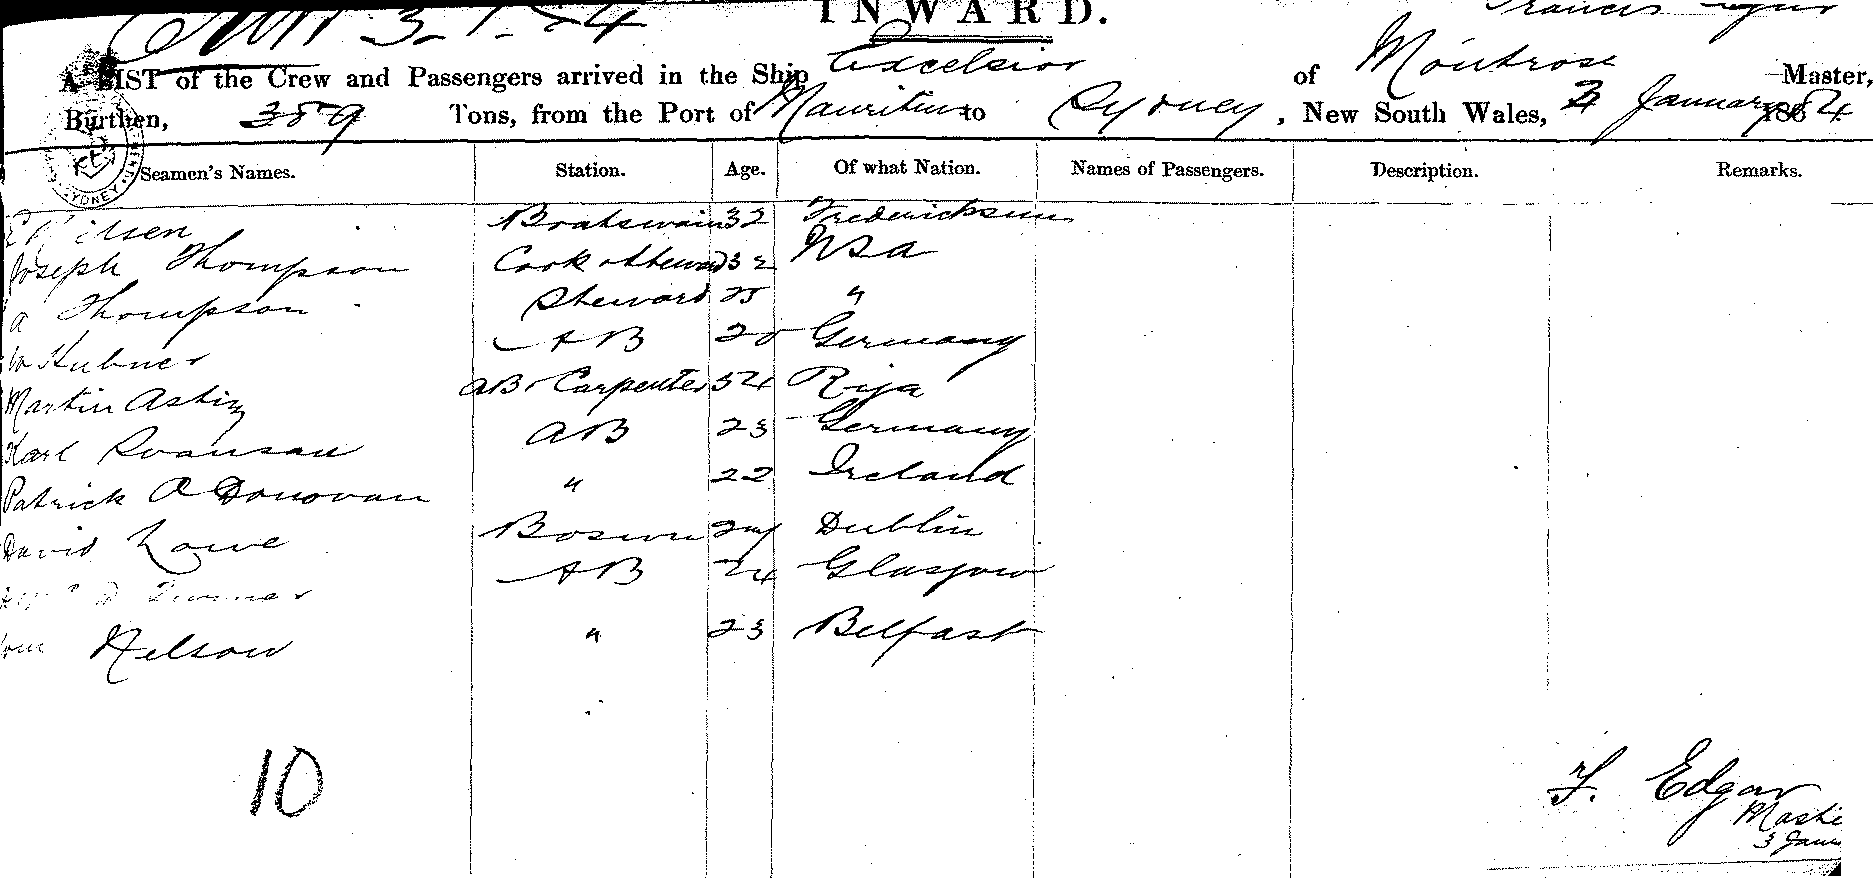 3-1-84
INWARD.
A LIST of the Crew and Passengers arrived in the Ship Excelsior of Montrose Master,
Burthen, 389 Tons, from the Port of Mauritius to Sydney, New South Wales, 3 January 1884
Seamen's Names. Station. Age. Of what Nation. Names of Passengers. Description. Remarks.
Boatswain 32
Joseph Thompson Cook & Steward 32 USA
a Thompson Steward 25 "
Hubner AB 20 Germany
Martin AB & Carpenter 54 Riga
Karl Svansan AB 23 Germany
Patrick O Donovan " 22 Ireland
David Lowe Boswn Dublin
AB 24 Glasgow
Nelson " 23 Belfast
10
F. Edgar
3